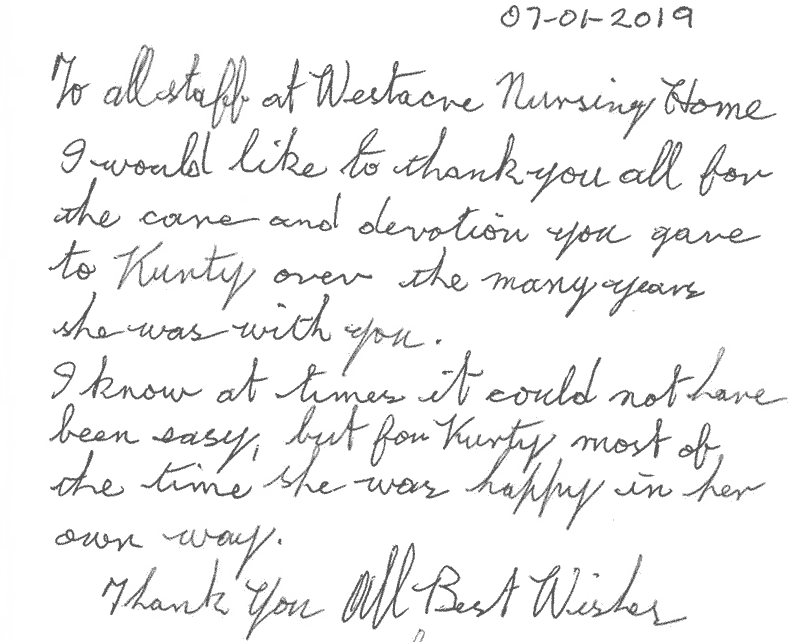 07-01-2019
To all staff at Westacre Nursing Home
I would like to thank you all for
the care and devotion you gave
to Kunty over the many years
she was with you.
I know at times it could not have
been easy, but for Kunty most of
the time she was happy in her
own way.
Thank You All Best Wishes